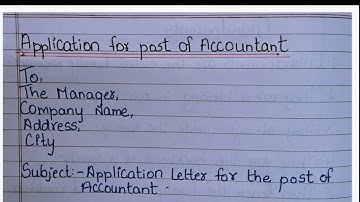 Application for post of Accountant
To,
The Manager,
Company Name,
Address,
City
Subject:-Application Letter for the post of
Accountant.